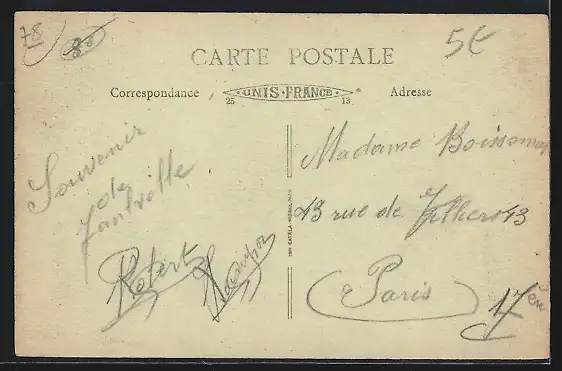 78
80
5€
CARTE POSTALE
Correspondance
UNIS-FRANCE
25 13
Adresse
Souvenir
de
Janville
Robert
Madame Boissonnas
43 rue de Villiers 43
Paris
17èm